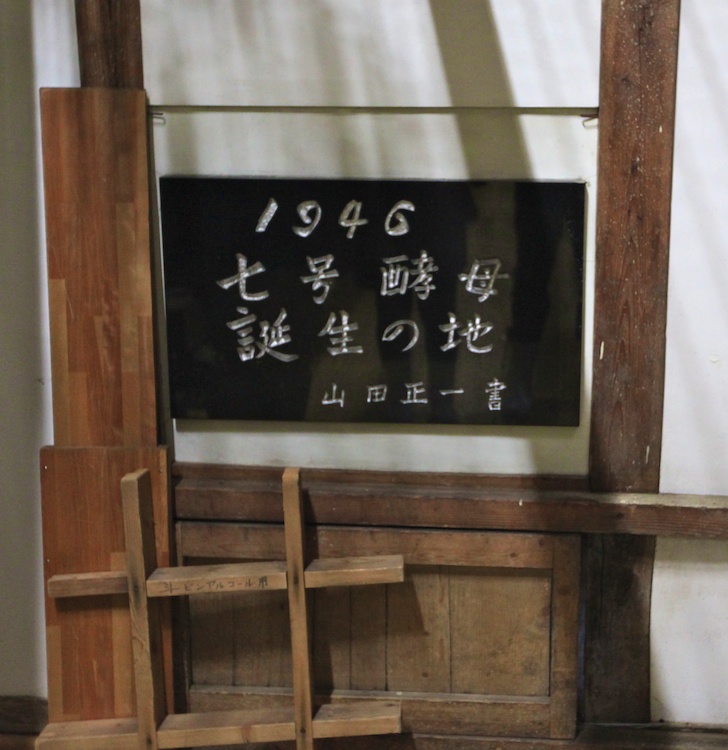 1946
七号酵母
誕生の地
山田正一書
ビンアルコール用